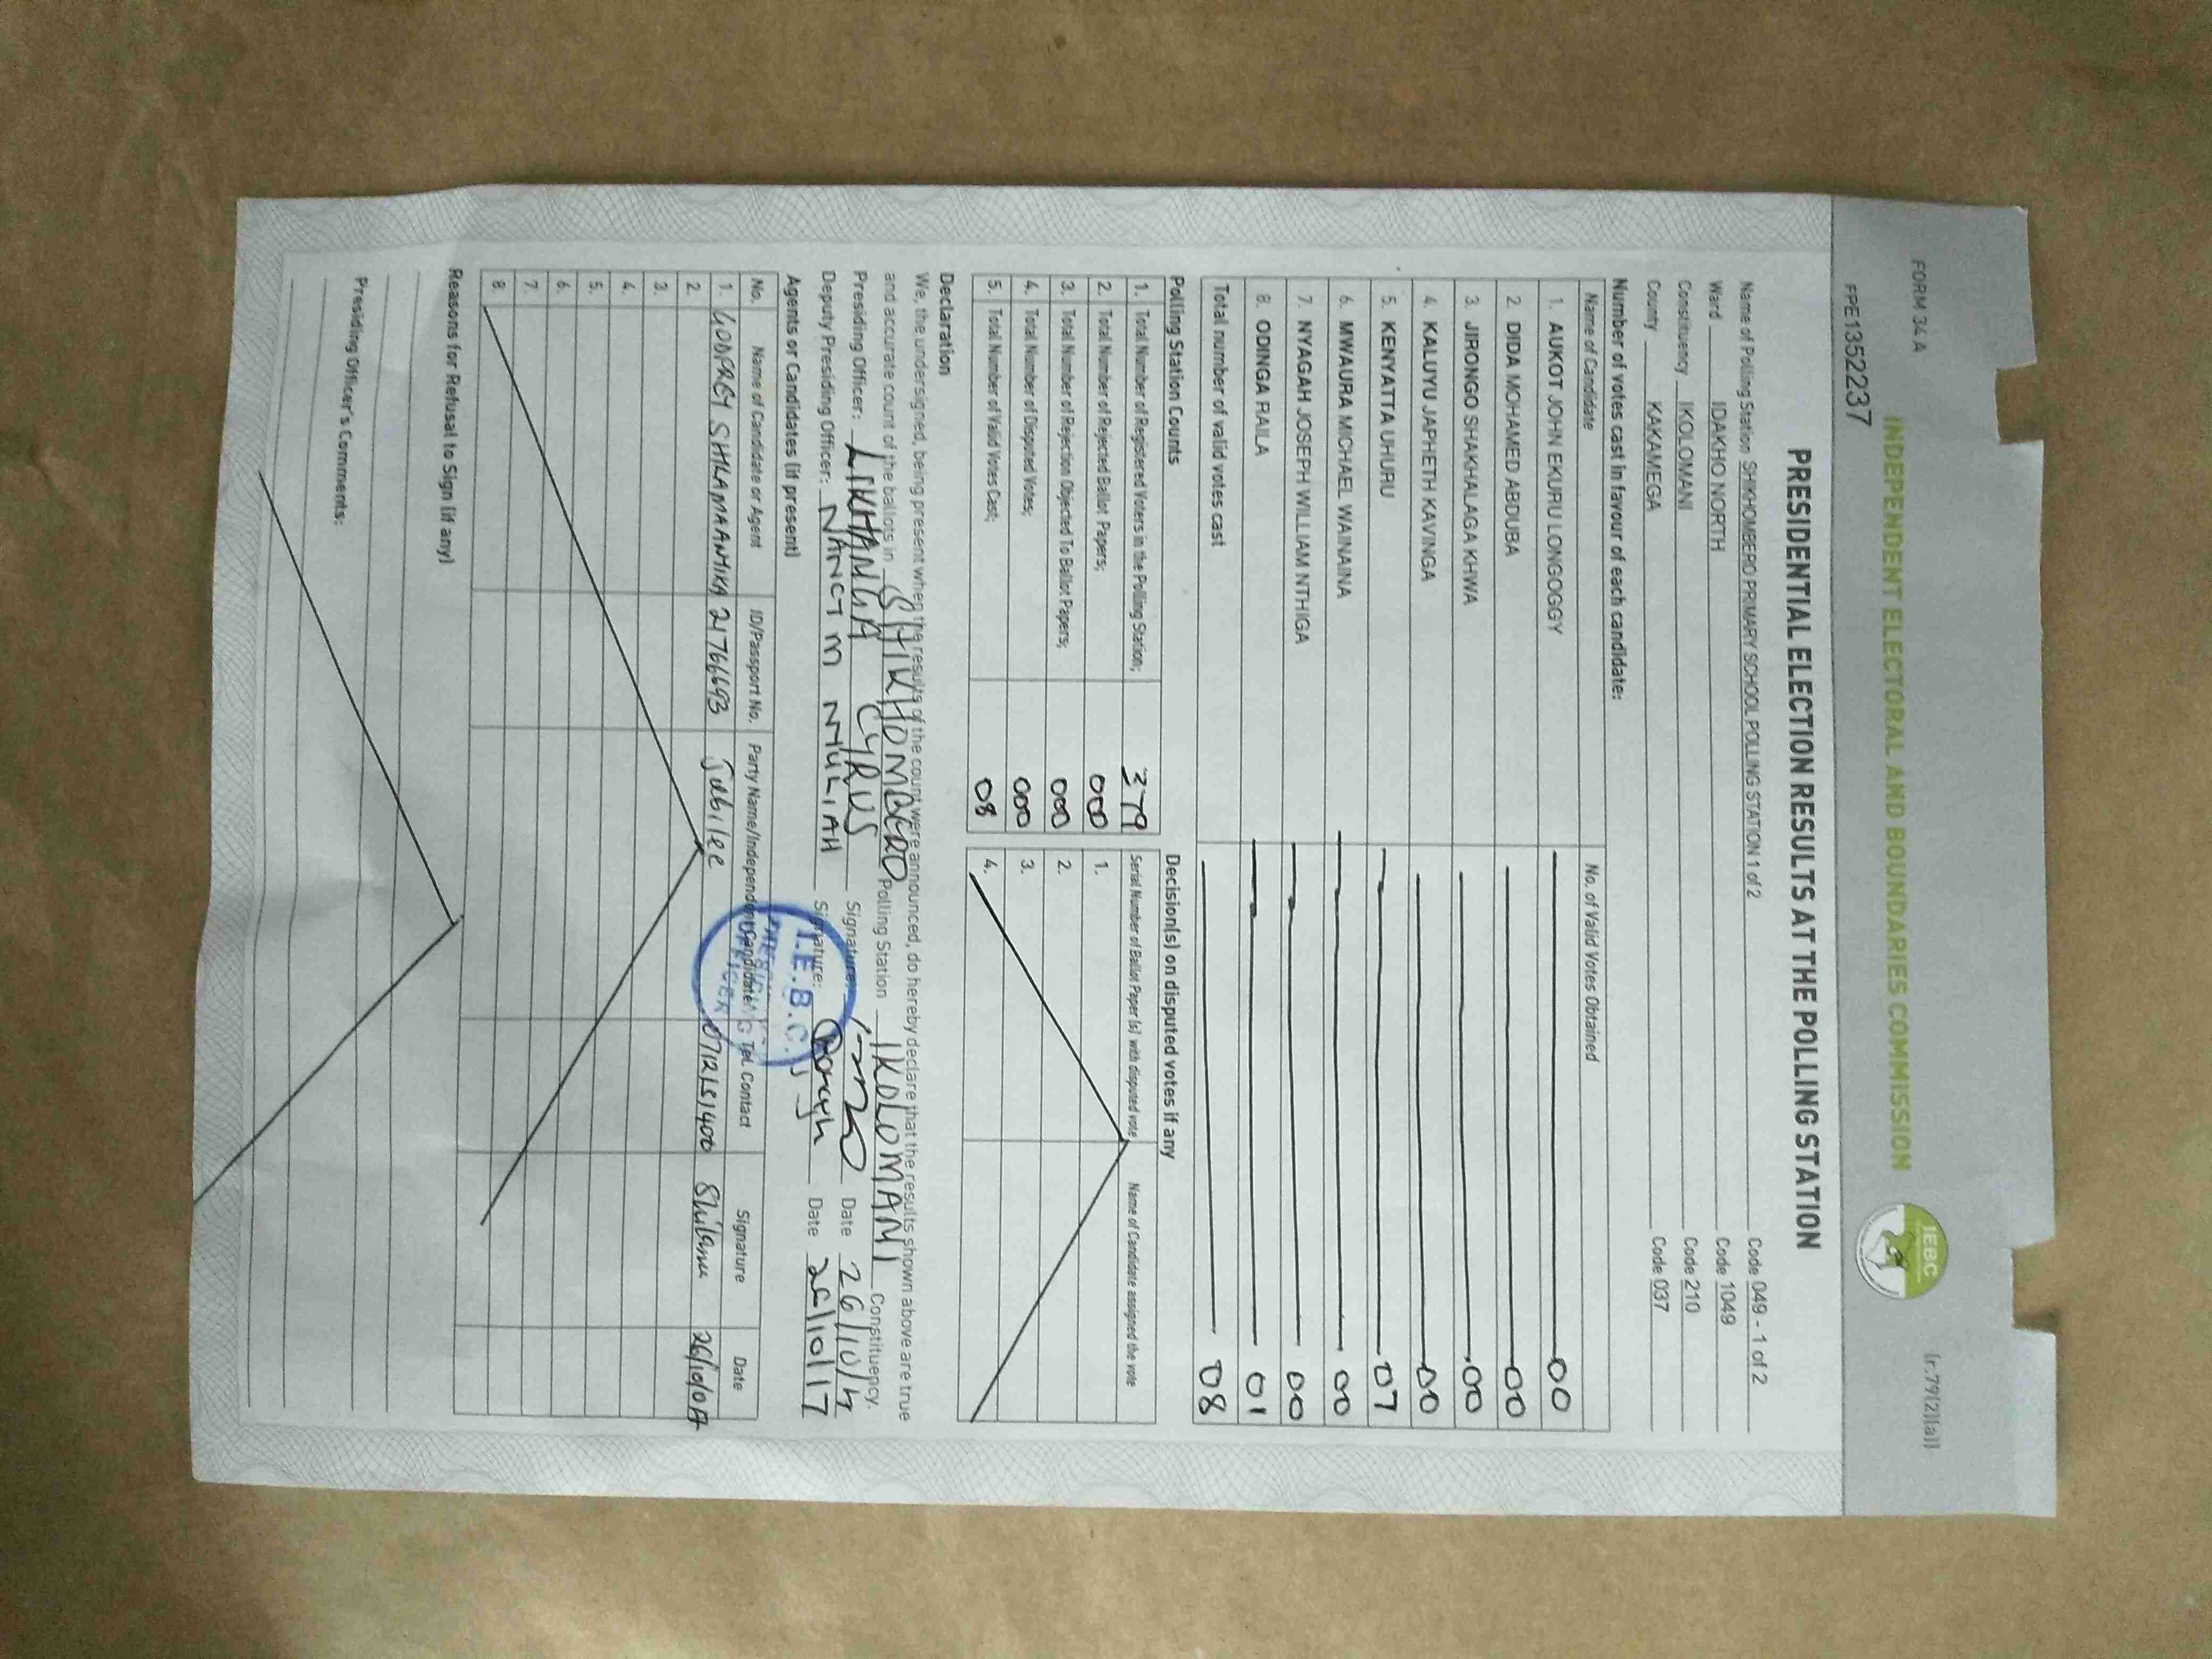 FORM 34 A
(r.79(2)(a))
INDEPENDENT ELECTORAL AND BOUNDARIES COMMISSION
IEBC
FPE1352237
PRESIDENTIAL ELECTION RESULTS AT THE POLLING STATION
Name of Polling Station SHIKHOMBERO PRIMARY SCHOOL POLLING STATION 1 of 2 Code 049 - 1 of 2
Ward IDAKHO NORTH Code 1049
Constituency IKOLOMANI Code 210
County KAKAMEGA Code 037
Number of votes cast in favour of each candidate:
Name of Candidate No. of Valid Votes Obtained
1. AUKOT JOHN EKURU LONGOGGY 00
2. DIDA MOHAMED ABDUBA 00
3. JIRONGO SHAKHALAGA KHWA 00
4. KALUYU JAPHETH KAVINGA 00
5. KENYATTA UHURU 07
6. MWAURA MICHAEL WAINAINA 00
7. NYAGAH JOSEPH WILLIAM NTHIGA 00
8. ODINGA RAILA 01
Total number of valid votes cast 08
Polling Station Counts
1. Total Number of Registered Voters in the Polling Station; 379
2. Total Number of Rejected Ballot Papers; 000
3. Total Number of Rejection Objected To Ballot Papers; 000
4. Total Number of Disputed Votes; 000
5. Total Number of Valid Votes Cast; 08
Decision(s) on disputed votes if any
Serial Number of Ballot Paper (s) with disputed vote Name of Candidate assigned the vote
1.
2.
3.
4.
Declaration
We, the undersigned, being present when the results of the count were announced, do hereby declare that the results shown above are true
and accurate count of the ballots in SHIKHOMBERO Polling Station IKOLOMANI Constituency.
Presiding Officer: LIKHANGA CYRUS Signature: Date 26/10/17
Deputy Presiding Officer: Signature: Date 26/10/17
I.E.B.C.
Agents or Candidates (if present)
No. Name of Candidate or Agent ID/Passport No. Party Name/Independent Candidate Tel. Contact Signature Date
1. GODFREY 21766693 Jubilee 0712151400
2.
3.
4.
5.
6.
7.
8.
Reasons for Refusal to Sign (if any)
Presiding Officer's Comments: